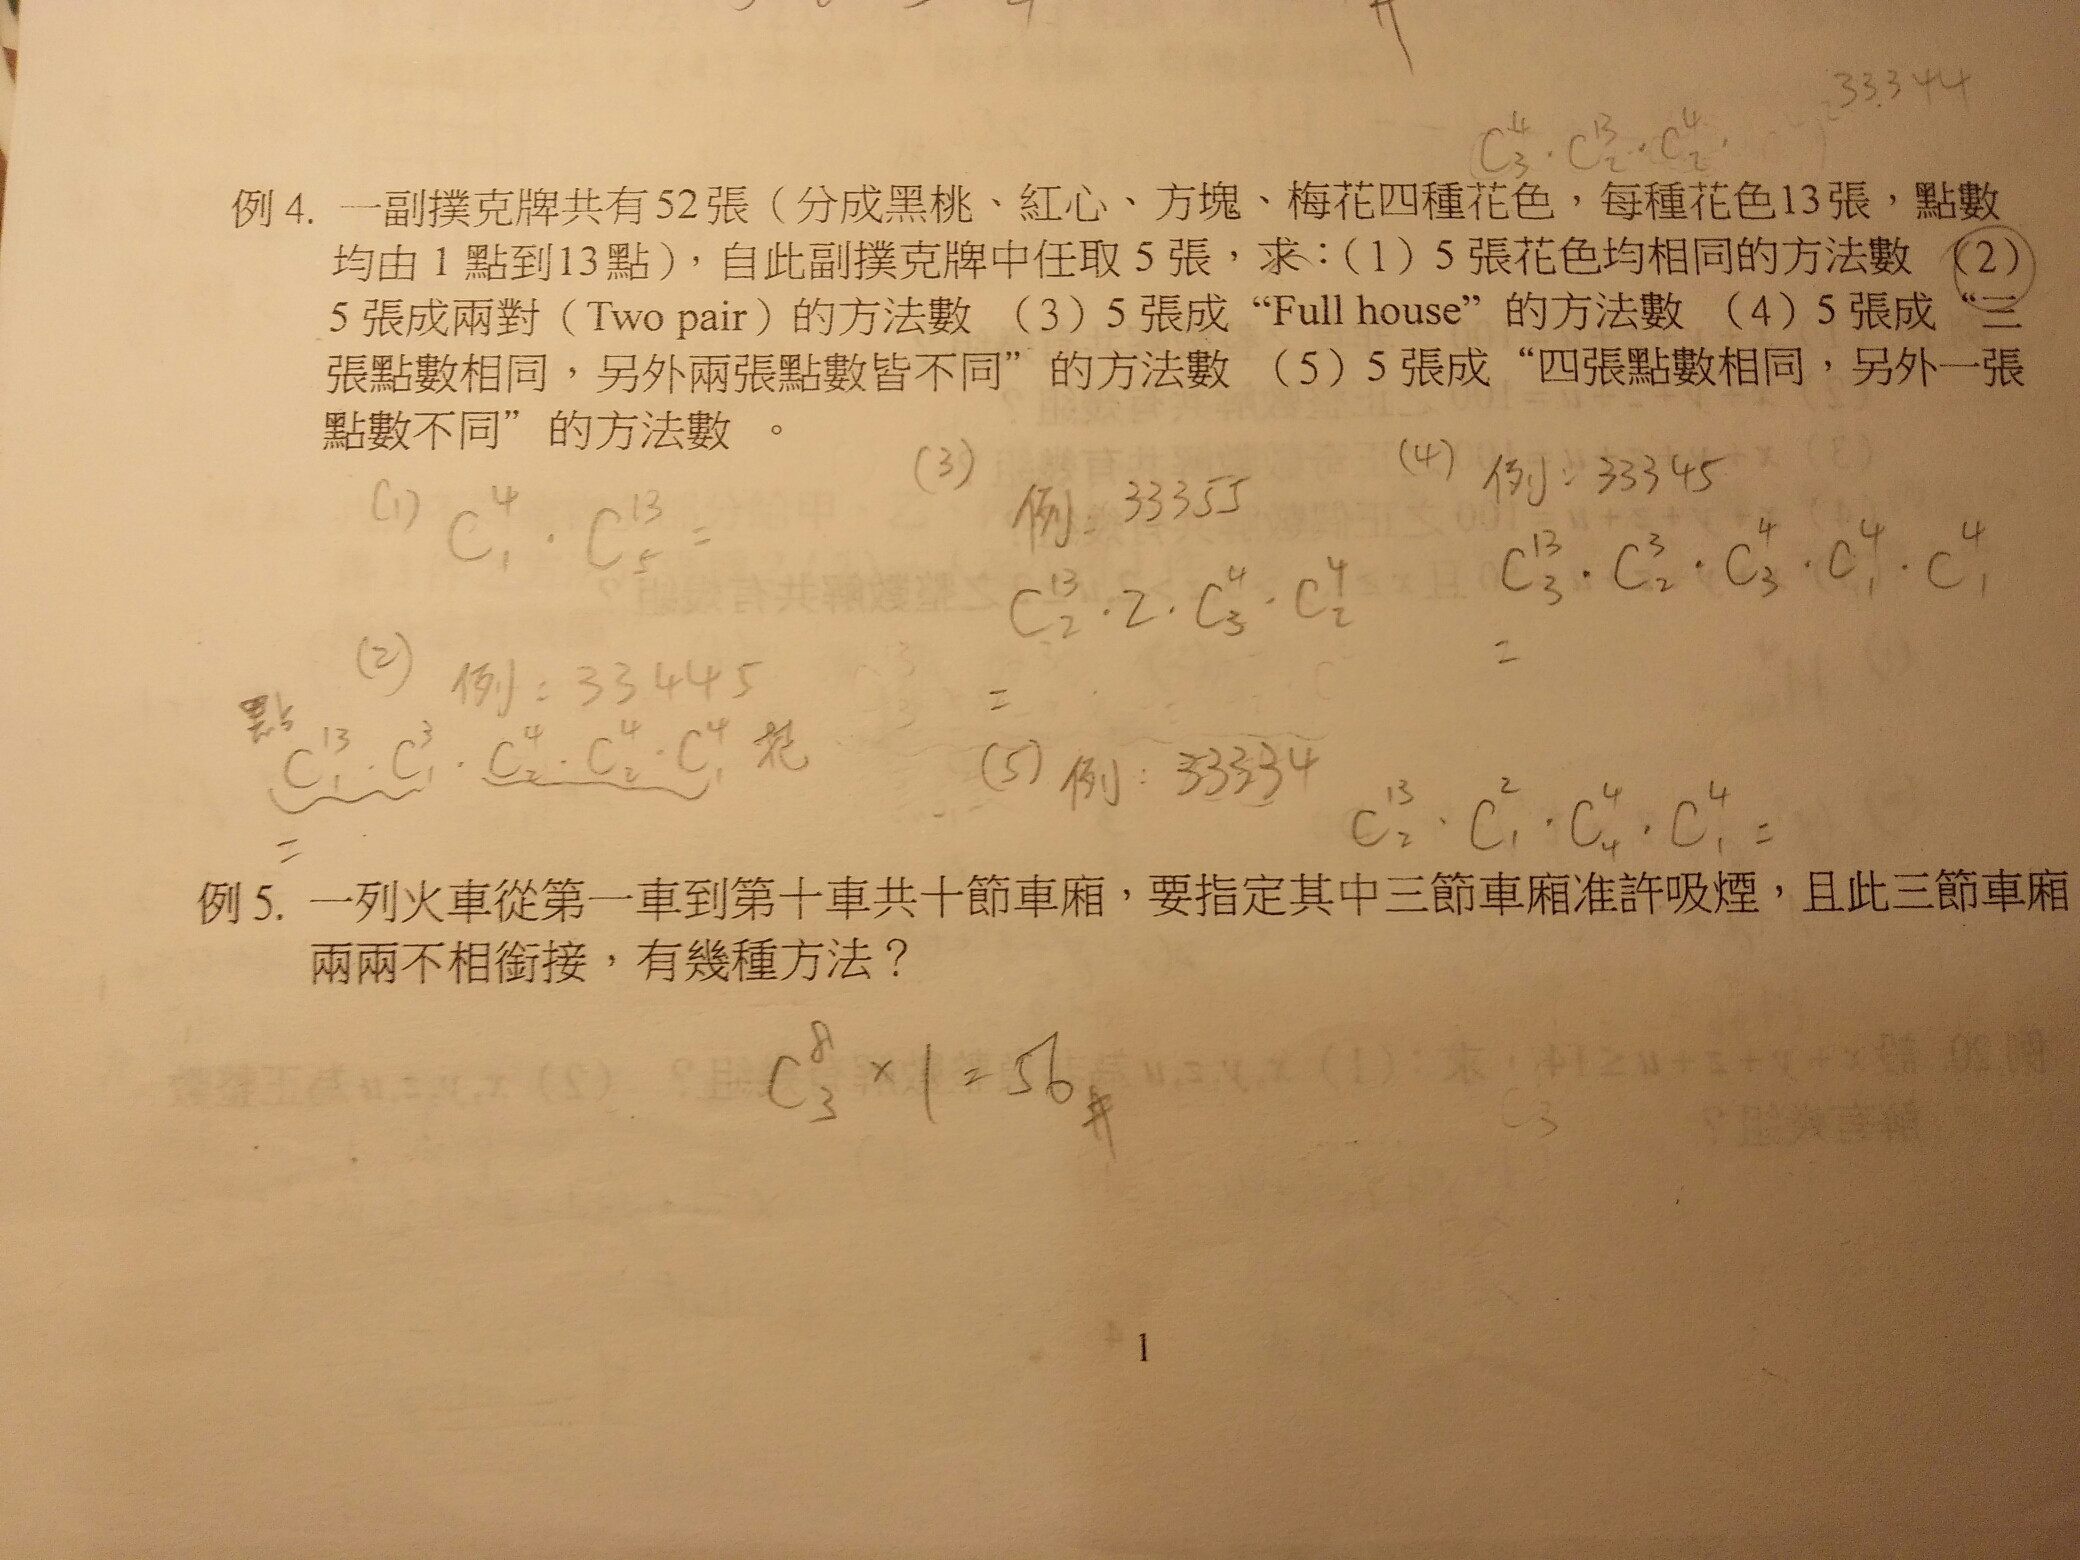 33344
C⁴₃ · C¹³₂ · C⁴₂ ·
例 4. 一副撲克牌共有 52 張（分成黑桃、紅心、方塊、梅花四種花色，每種花色13張，點數
均由 1 點到13點），自此副撲克牌中任取 5 張，求：（1）5 張花色均相同的方法數 （2）
5 張成兩對（Two pair）的方法數 （3）5 張成 “Full house” 的方法數 （4）5 張成 “三
張點數相同，另外兩張點數皆不同” 的方法數 （5）5 張成 “四張點數相同，另外一張
點數不同” 的方法數 。
(1) C⁴₁ · C¹³₅ =
(2) 例：33445
點 C¹³₁ · C³₁ · C⁴₂ · C⁴₂ · C⁴₁ 花
=
(3) 例：33355
C¹³₂ · 2 · C⁴₃ · C⁴₂
=
(4) 例：33345
C¹³₃ · C³₂ · C⁴₃ · C⁴₁ · C⁴₁
=
(5) 例：33334
C¹³₂ · C²₁ · C⁴₄ · C⁴₁ =
例 5. 一列火車從第一車到第十車共十節車廂，要指定其中三節車廂准許吸煙，且此三節車廂
兩兩不相銜接，有幾種方法？
C⁸₃ × 1 = 56 #
1